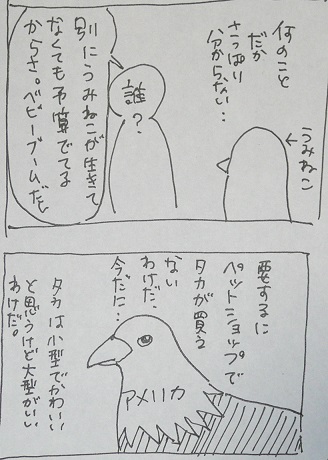 何のこと
だか
さっぱり
分からない…
←うみねこ
誰?
別にうみねこが生きて
なくても予算でてる
からさ。ベビーブームだし
要するに
ペットショップで
タカが買う
ない
わけだ、
今だに…
アメリカ
タカは小型でかわいい
と思うけど大型がいい
わけだ。